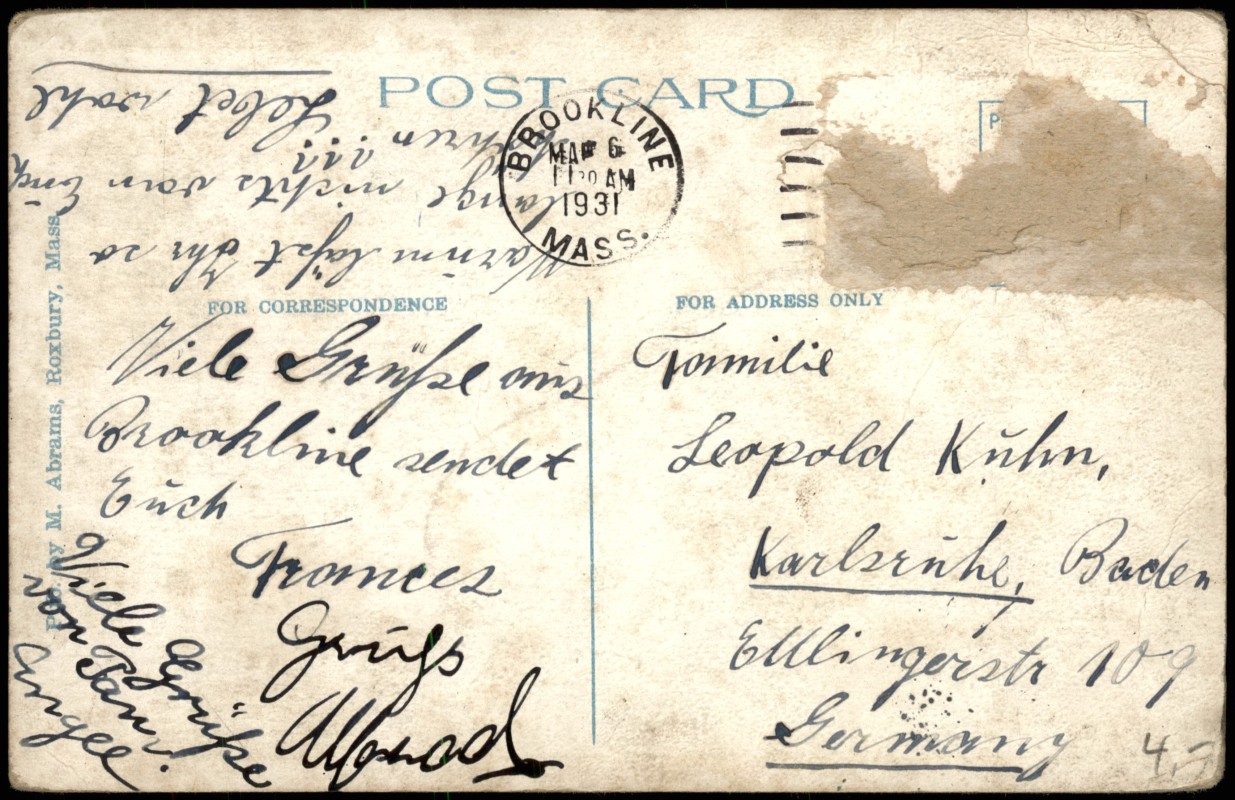 POST CARD
BROOKLINE
MAR 6
11 30 AM
1931
MASS.
P
Pub. by M. Abrams, Roxbury, Mass.
FOR CORRESPONDENCE
FOR ADDRESS ONLY
Viele Grüße aus
Brookline sendet
Euch
Frances
Gruß
Viele Grüße
von
Warum läßt Ihr so
lange nichts von Euch
hören ???
Lebet wohl
Familie
Leopold Kuhn,
Karlsruhe, Baden
Ettlingerstr 109
Germany
4.-